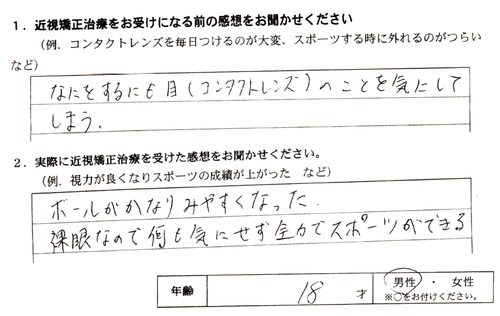 1．近視矯正治療をお受けになる前の感想をお聞かせください
（例．コンタクトレンズを毎日つけるのが大変、スポーツする時に外れるのがつらい
など）
なにをするにも目(コンタクトレンズ)のことを気にして
しまう.
2．実際に近視矯正治療を受けた感想をお聞かせください。
（例．視力が良くなりスポーツの成績が上がった　など）
ボールがかなりみやすくなった.
裸眼なので何も気にせず全力でスポーツができる
年齢 18 才 男性 ・ 女性
※○をお付けください。